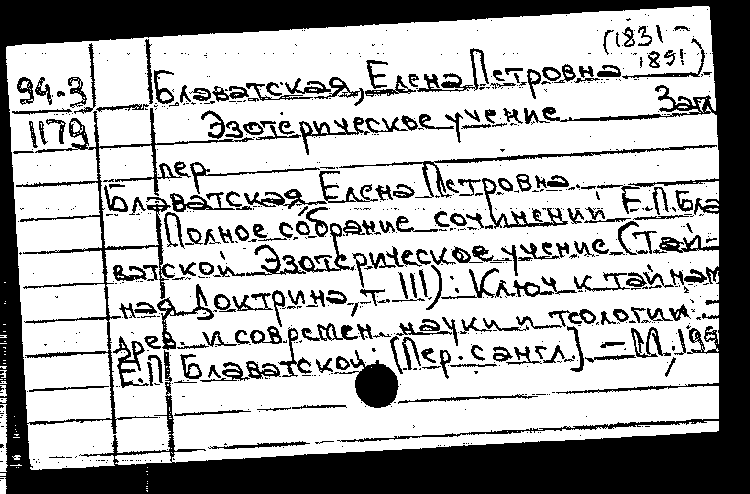 (1831 -
94-3 Блаватская, Елена Петровна 1891)
1179 Эзотерическое учение Загл
пер.
Блаватская Елена Петровна.
Полное собрание сочинений Е.П.Бла
ватской Эзотерическое учение (Тай-
ная Доктрина, т III): Ключ к тайнам
древ. и современ. науки и теологии. -
Е.П. Блаватской: [Пер. с англ]. - М., 199